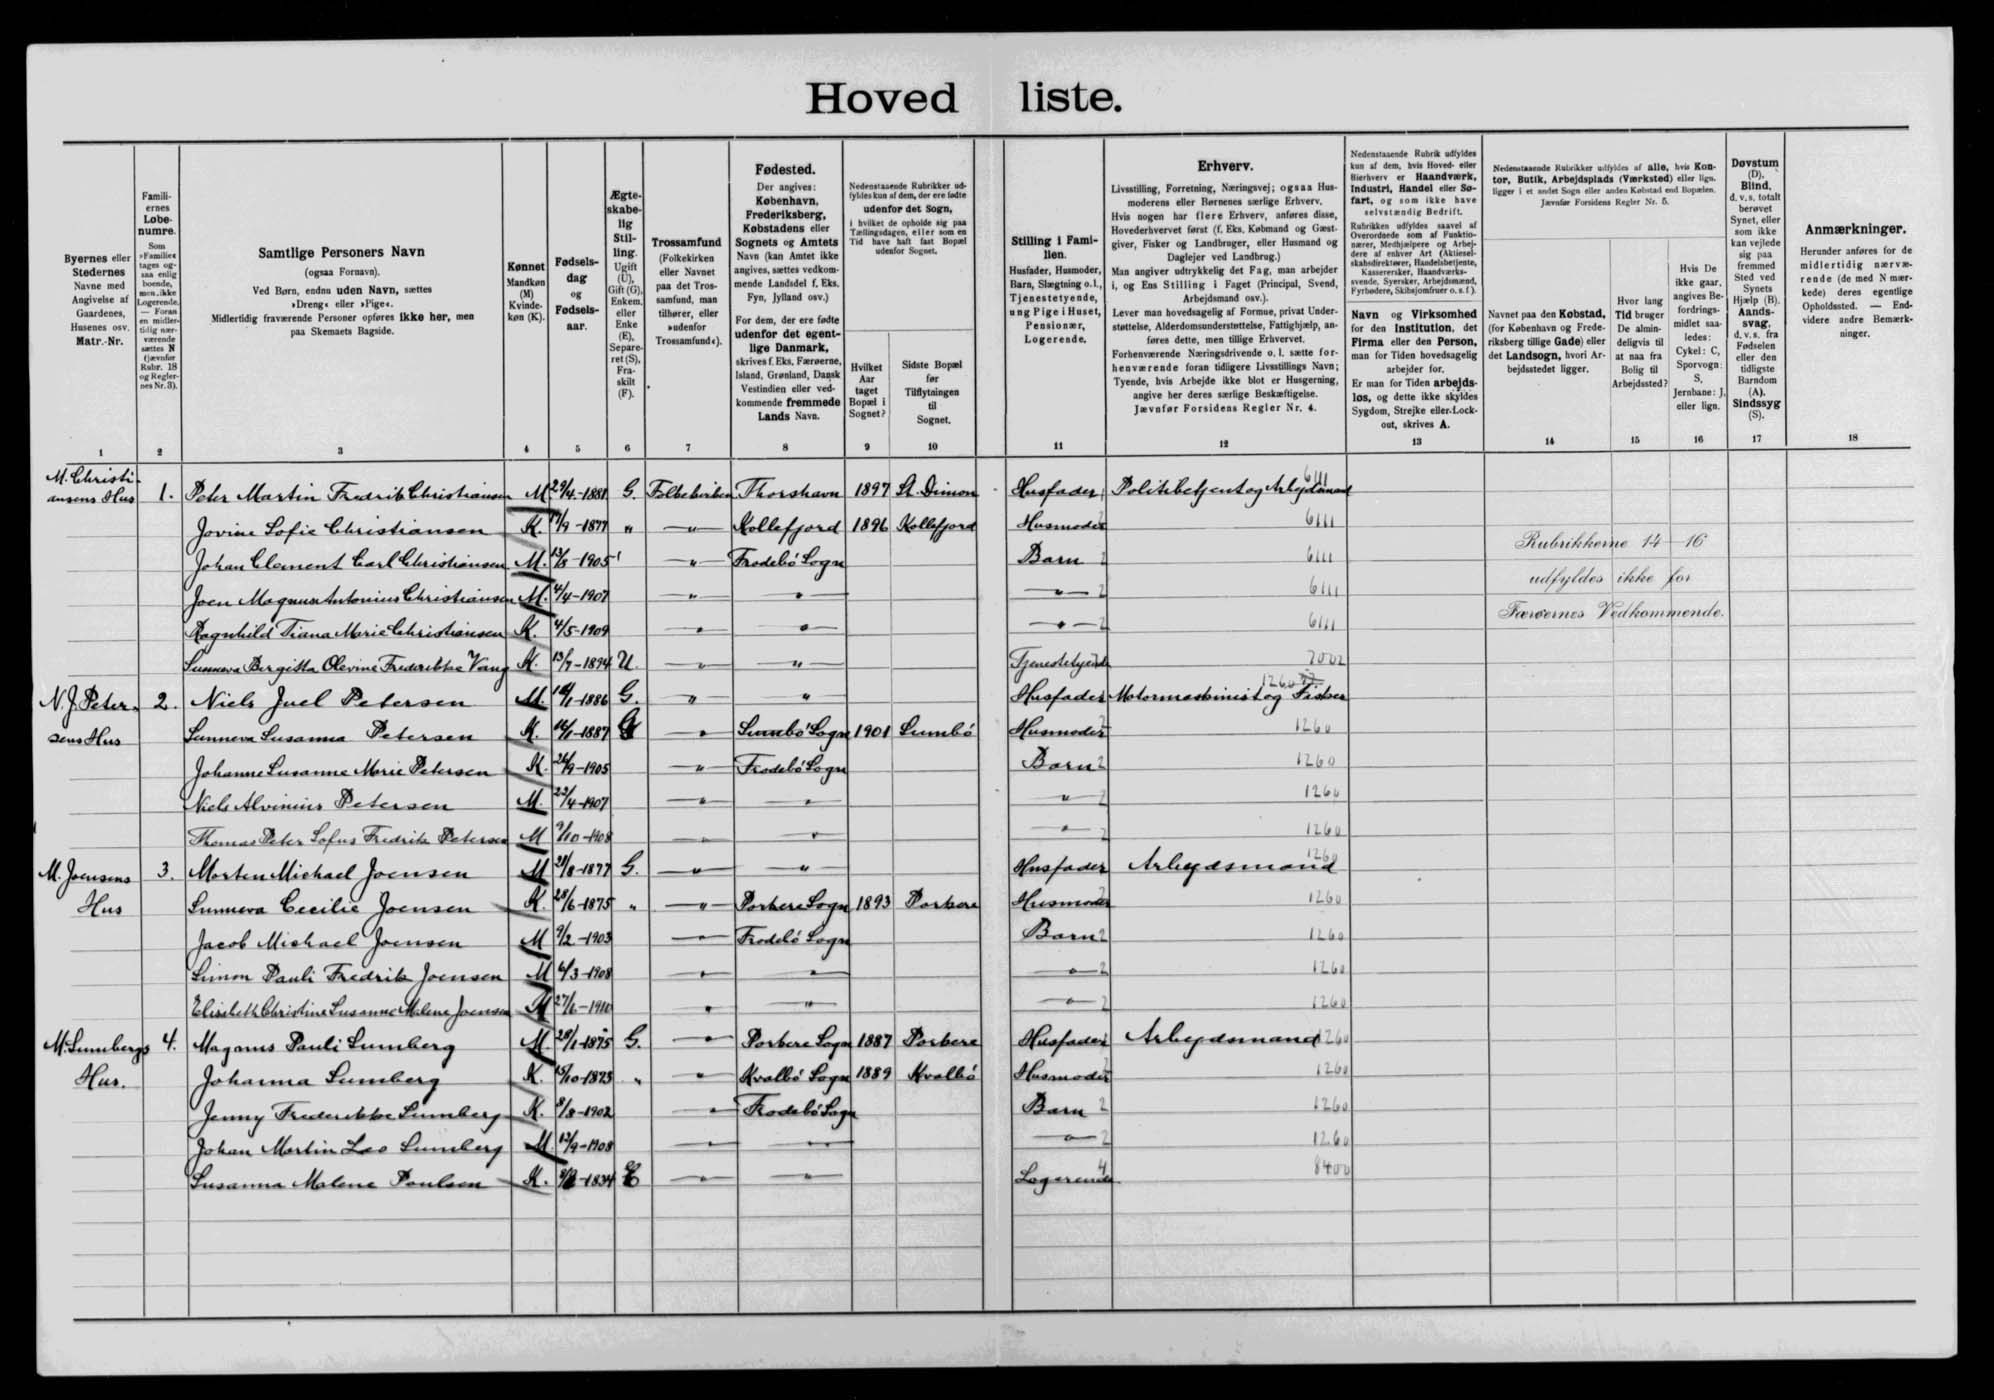 Hoved liste.
Byernes eller Stedernes Navne med Angivelse af Gaardenes, Husenes osv. Matr.-Nr.
Familiernes Løbenumre.
Som »Familie« tages ogsaa enlig boende, men ikke Logerende. — Foran en midlertidig nærværende sættes N (jævnfør Rubr. 18 og Reglernes Nr. 3).
Samtlige Personers Navn
(ogsaa Fornavn).
Ved Børn, endnu uden Navn, sættes
»Dreng« eller »Pige«.
Midlertidig fraværende Personer opføres ikke her, men
paa Skemaets Bagside.
Kønnet
Mandkøn (M)
Kvindekøn (K).
Fødselsdag
og
Fødselsaar.
Ægteskabelig Stilling.
Ugift (U), Gift (G), Enkem. eller Enke (E), Separeret (S), Fraskilt (F).
Trossamfund
(Folkekirken eller Navnet paa det Trossamfund, man tilhører, eller »udenfor Trossamfund«).
Fødested.
Der angives:
København, Frederiksberg, Købstadens eller Sognets og Amtets Navn (kan Amtet ikke angives, sættes vedkommende Landsdel f. Eks. Fyn, Jylland osv.)
For dem, der ere fødte udenfor det egentlige Danmark, skrives f. Eks. Færøerne, Island, Grønland, Dansk Vestindien eller vedkommende fremmede Lands Navn.
Nedenstaaende Rubrikker udfyldes kun af dem, der ere fødte udenfor det Sogn, i hvilket de opholde sig paa Tællingsdagen, eller som en Tid have haft fast Bopæl udenfor Sognet.
Hvilket Aar taget Bopæl i Sognet?
Sidste Bopæl før Tilflytningen til Sognet.
Stilling i Familien.
Husfader, Husmoder, Barn, Slægtning o.l., Tjenestetyende, ung Pige i Huset, Pensionær, Logerende.
Erhverv.
Livsstilling, Forretning, Næringsvej; ogsaa Husmoderens eller Børnenes særlige Erhverv.
Hvis nogen har flere Erhverv, anføres disse, Hovederhvervet først (f. Eks. Købmand og Gæstgiver, Fisker og Landbruger, eller Husmand og Daglejer ved Landbrug.)
Man angiver udtrykkelig det Fag, man arbejder i, og Ens Stilling i Faget (Principal, Svend, Arbejdsmand osv.).
Lever man hovedsagelig af Formue, privat Understøttelse, Alderdomsunderstøttelse, Fattighjælp, anføres dette, men tillige Erhvervet.
Forhenværende Næringsdrivende o. l. sætte forhenværende foran tidligere Livsstillings Navn; Tyende, hvis Arbejde ikke blot er Husgerning, angive her deres særlige Beskæftigelse.
Jævnfør Forsidens Regler Nr. 4.
Nedenstaaende Rubrik udfyldes kun af dem, hvis Hoved- eller Bierhverv er Haandværk, Industri, Handel eller Søfart, og som ikke have selvstændig Bedrift.
Rubrikken udfyldes saavel af Overordnede som af Funktionærer, Medhjælpere og Arbejdere af enhver Art (Aktieselskabsdirektører, Handelsbetjente, Kasserersker, Haandværkssvende, Syersker, Arbejdsmænd, Fyrbødere, Skibsjomfruer o. s. f.).
Navn og Virksomhed for den Institution, det Firma eller den Person, man for Tiden hovedsagelig arbejder for.
Er man for Tiden arbejdsløs, og dette ikke skyldes Sygdom, Strejke eller Lockout, skrives A.
Nedenstaaende Rubrikker udfyldes af alle, hvis Kontor, Butik, Arbejdsplads (Værksted) eller lign. ligger i et andet Sogn eller anden Købstad end Bopælen.
Jævnfør Forsidens Regler Nr. 5.
Navnet paa den Købstad, (for København og Frederiksberg tillige Gade) eller det Landsogn, hvori Arbejdsstedet ligger.
Hvor lang Tid bruger De almindeligvis til at naa fra Bolig til Arbejdssted?
Hvis De ikke gaar, angives Befordringsmidlet saaledes: Cykel: C, Sporvogn: S, Jernbane: J, eller lign.
Døvstum (D). Blind, d. v. s. totalt berøvet Synet, eller som ikke kan vejlede sig paa fremmed Sted ved Synets Hjælp (B). Aandssvag, d. v. s. fra Fødselen eller den tidligste Barndom (A). Sindssyg (S).
Anmærkninger.
Herunder anføres for de midlertidig nærværende (de med N mærkede) deres egentlige Opholdssted. — Endvidere andre Bemærkninger.
1 2 3 4 5 6 7 8 9 10 11 12 13 14 15 16 17 18
M. Christiansens Hus 1. Peter Martin Fredrik Christiansen M 29/4-1881 G. Folkekirken Thorshavn 1897 St. Dimon Husfader Politibetjent og Arbejdsmand 6111
Jovine Sofie Christiansen K. 17/9-1877 " " Kollefjord 1896 Kollefjord Husmoder 2 6111
Johan Clement Carl Christiansen M. 13/8-1905 " Frodebö Sogn Barn 2 6111
Rubrikkerne 14—16
Joen Magnus Antonius Christiansen M. 4/4-1907 " " " 2 6111
udfyldes ikke for
Ragnhild Tiana Marie Christiansen K. 4/5-1909 " " " 2 6111
Færøernes Vedkommende.
Sunneva Birgitta Olevine Frederikke Vang K. 13/7-1894 U. " " Tjenestetyende 7002
N. J. Petersens Hus 2. Niels Juel Petersen M. 18/1-1886 G. " " Husfader Motormaskinist og Fisker 1260
Sunneva Susanna Petersen K. 16/1-1887 G " Sumbö Sogn 1901 Sumbö Husmoder 2 1260
Johanne Susanne Marie Petersen K. 26/9-1905 " Frodebö Sogn Barn 2 1260
Niels Alvinius Petersen M. 22/4-1907 " " " 2 1260
Thomas Peter Sofus Fredrik Petersen M 9/10-1908 " " " 2 1260
M. Joensens Hus 3. Morten Michael Joensen M 21/8-1877 G. " " Husfader Arbejdsmand 1260
Sunneva Cecilie Joensen K. 28/6-1875 " " Porkere Sogn 1893 Porkere Husmoder 2 1260
Jacob Michael Joensen M 9/2-1903 " Frodebö Sogn Barn 2 1260
Simon Pauli Fredrik Joensen M 6/3-1908 " " " 2 1260
Elisabeth Christine Susanne Malene Joensen 27/6-1910 " " " 2 1260
M. Sumbergs Hus. 4. Magnus Pauli Sumberg M. 28/1-1875 G. " Porkere Sogn 1887 Porkere Husfader Arbejdsmand 1260
Johanna Sumberg K. 15/10-1873 " " Kvalbö Sogn 1889 Kvalbö Husmoder 1260
Jenny Frederikke Sumberg K. 8/8-1902 " Frodebö Sogn Barn 2 1260
Johan Martin Leo Sumberg M. 13/9-1908 " " " 2 1260
Susanna Malene Poulsen K. 1834 E " " Logerende 4 8400